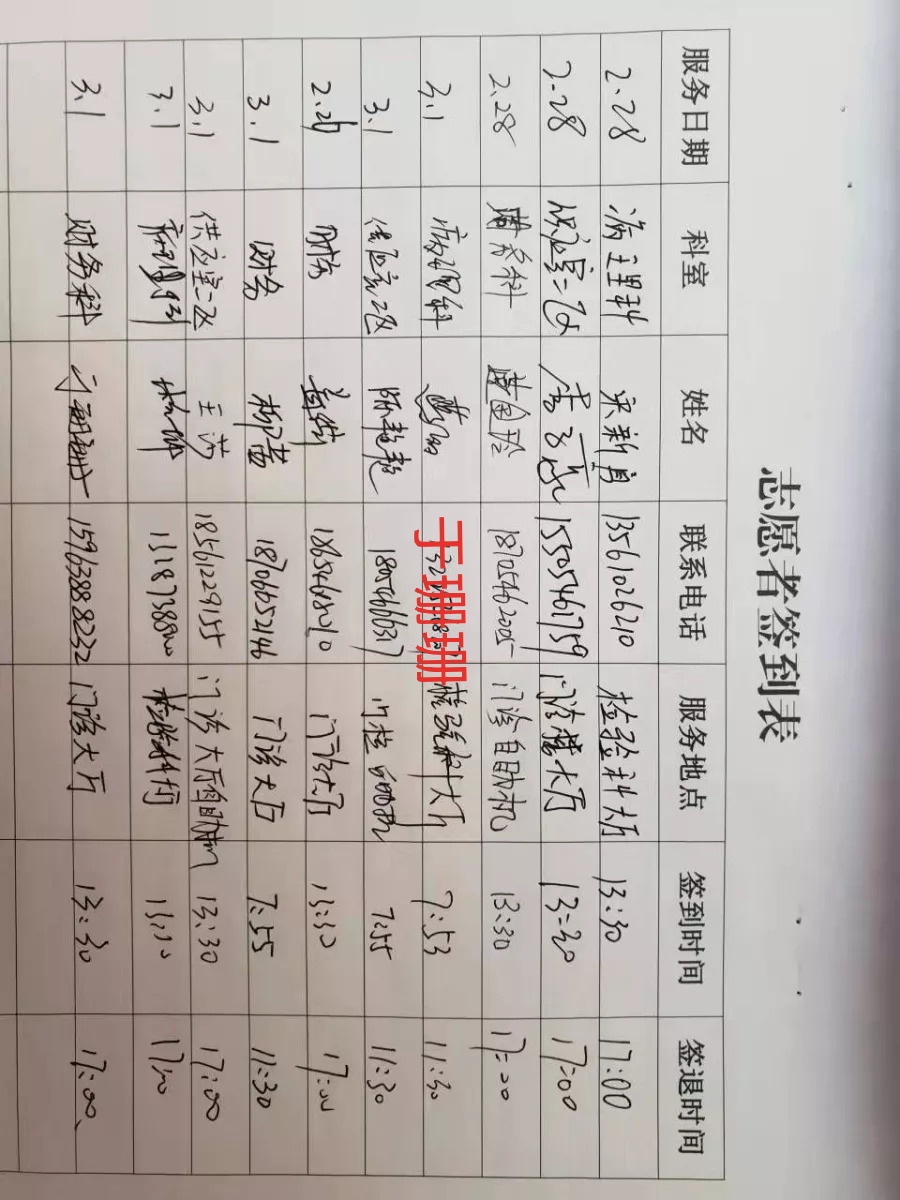 志愿者签到表
服务日期 科室 姓名 联系电话 服务地点 签到时间 签退时间
2.28 病理科 宋新肖 13561026210 检验科大厅 13:30 17:00
2.28 供应室二区 15505461759 门诊楼大厅 13:30 17:00
2.28 18705462005 门诊自助机 13:30 17:00
3.1 病理科 大厅 7:53 11:30
3.1 供应室二区 陈超超 7:55 11:30
2.28 财务 18654668010 门诊大厅 13:30 17:00
3.1 财务 柳茜 18706652146 门诊大厅 7:55 11:30
3.1 供应室二区 王芳 18561229155 门诊大厅自助机 13:30 17:00
3.1 病理科 13:30 17:00
3.1 财务科 于珊珊 15963888232 门诊大厅 13:30 17:00
于珊珊